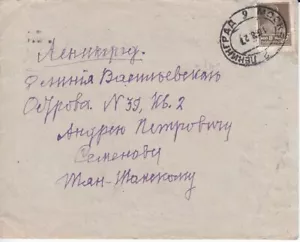 Ленинград.
Филиния Васильевскаго
Острова. N 39, Кв. 2
Андрею Петровичу
Семенову
Тян-Шанскому
ЛЕНИНГРАД